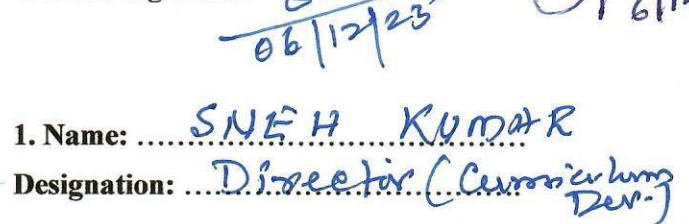 06/12/23
1. Name: ..... SNEH KUMAR
Designation: .... Director (Curriculum
Dev.)